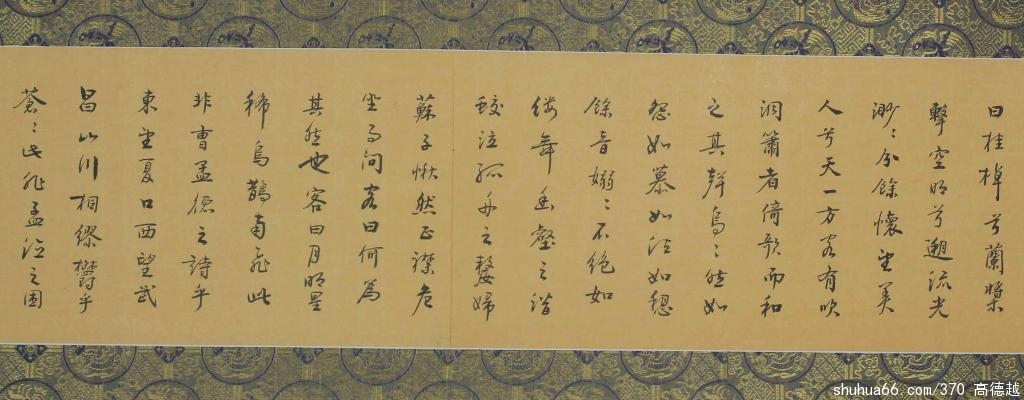 曰桂棹兮蘭槳
擊空明兮遡流光
渺〻兮餘懷望美
人兮天一方客有吹
洞簫者倚歌而和
之其聲烏〻然如
怨如慕如泣如愬
餘音嫋〻不絕如
縷舞幽壑之潛
蛟泣孤舟之嫠婦
蘇子愀然正襟危
坐而問客曰何為
其然也客曰月明星
稀烏鵲南飛此
非曹孟德之詩乎
東望夏口西望武
昌山川相繆鬱乎
蒼〻此非孟德之困
shuhua66.com/370 高德越